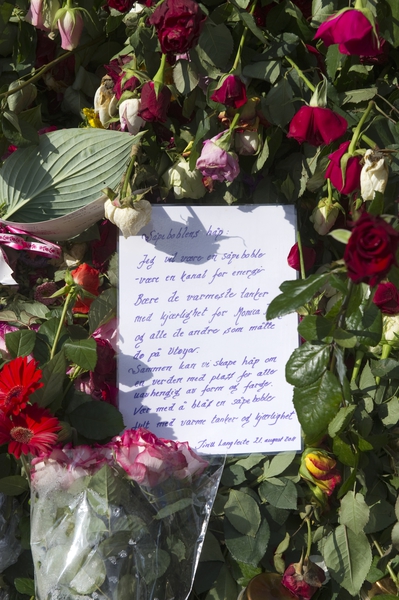 Såpeboblens håp:
Jeg vil være en såpeboble
- være en kanal for energi
Bære de varmeste tanker
med kjærlighet for Monica
og alle de andre som måtte
dø på Utøya.
Sammen kan vi skape håp om
en verden med plass for alle
uavhengig av form og farge.
Vær med å blåse en såpeboble
fylt med varme tanker og kjærlighet
21. august 2011